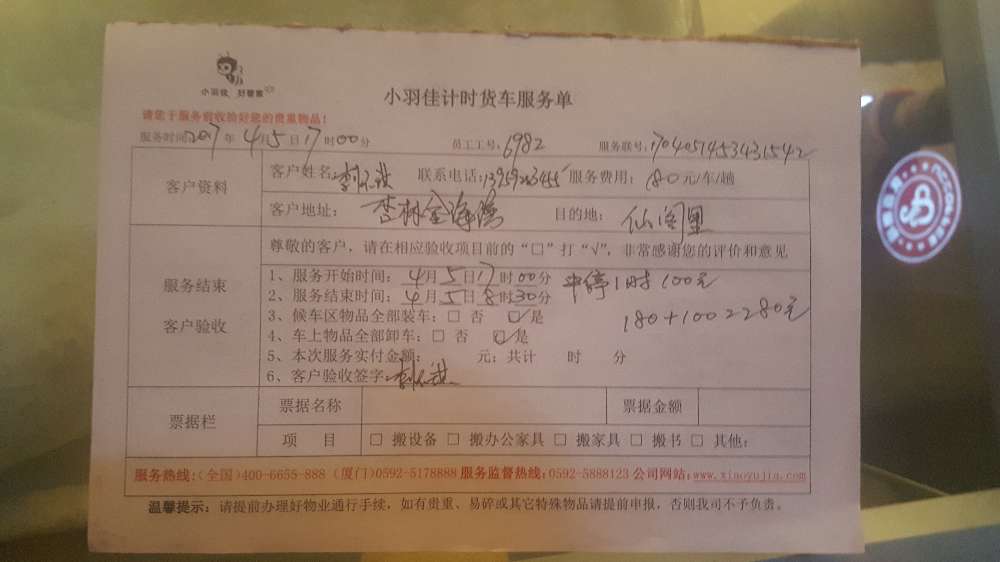 小羽佳 好管家
小羽佳计时货车服务单
请您于服务前收验好您的贵重物品!
服务时间:2017年4月5日17时00分 员工工号:6982 服务联号:1704051453431542
客户资料
客户姓名: 联系电话: 服务费用:180元/车/趟
客户地址:杏林金海湾 目的地:仙阁里
服务结束
客户验收
尊敬的客户,请在相应验收项目前的“□”打“√”,非常感谢您的评价和意见
1、服务开始时间:4月5日17时00分 中停1时100元
2、服务结束时间:4月5日8时30分
180+100=280元
3、候车区物品全部装车:□ 否 ☑是
4、车上物品全部卸车:□ 否 ☑是
5、本次服务实付金额: 元;共计 时 分
6、客户验收签字:
票据栏
票据名称 票据金额
项 目 □ 搬设备 □ 搬办公家具 □ 搬家具 □ 搬书 □ 其他:
服务热线:(全国)400-6655-888 (厦门)0592-5178888 服务监督热线:0592-5888123 公司网站:www.xiaoyujia.com
温馨提示:请提前办理好物业通行手续,如有贵重、易碎或其它特殊物品请提前申报,否则我司不予负责。